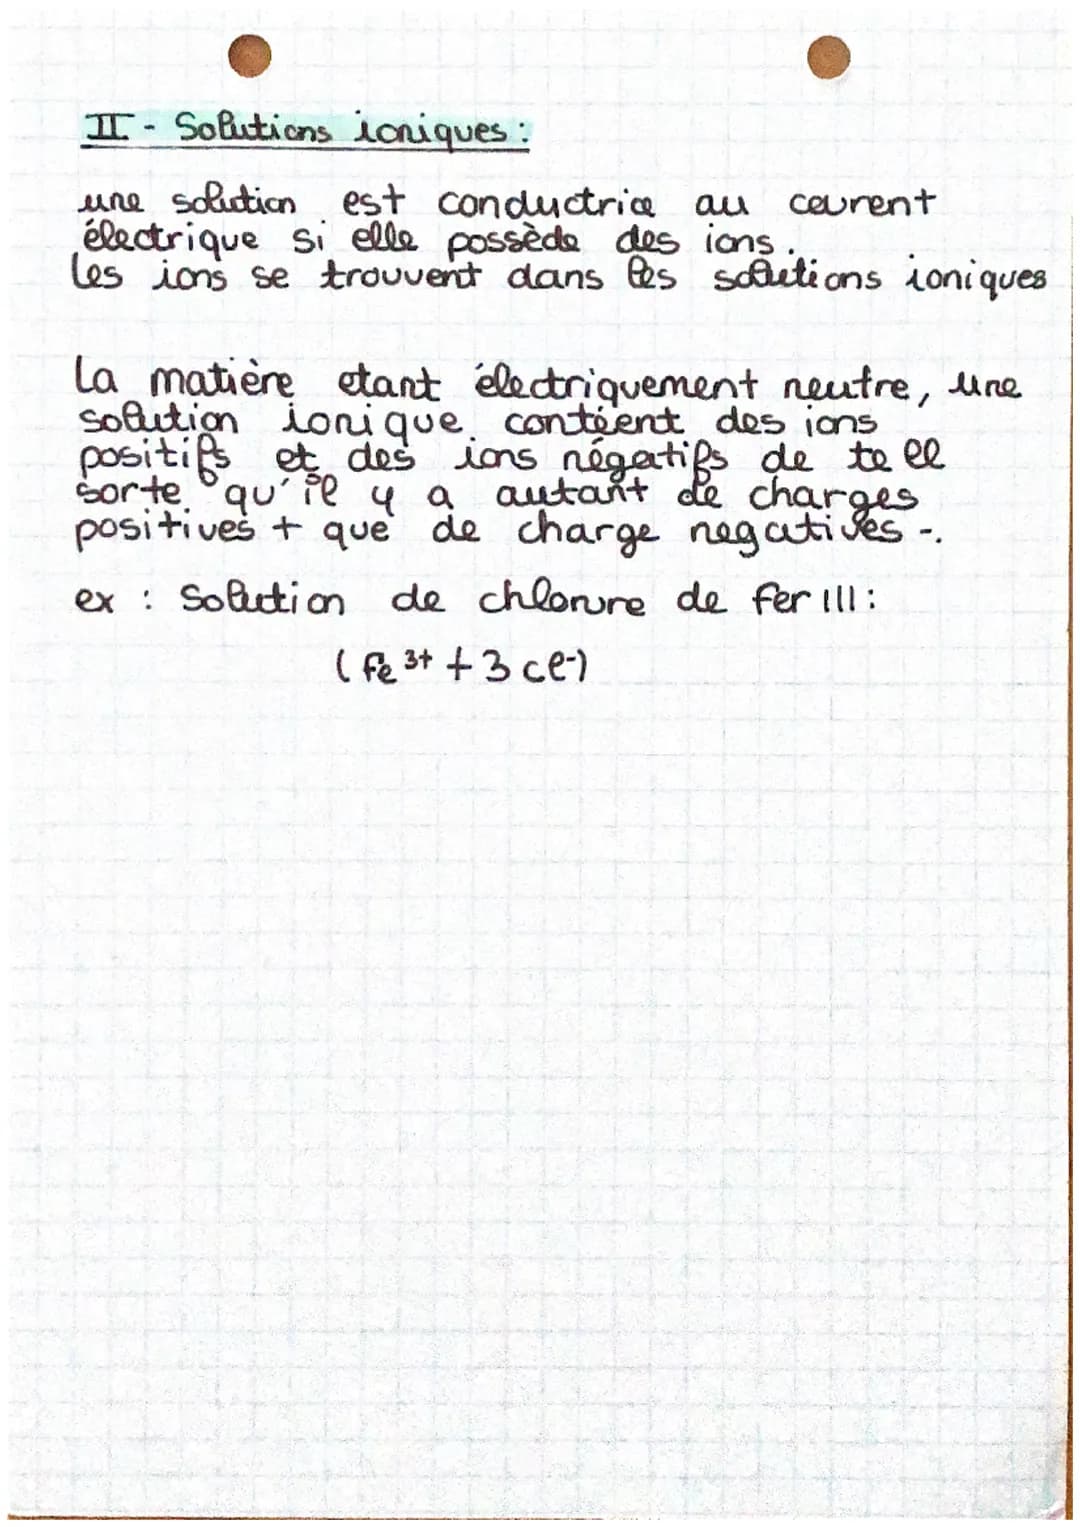 II - Solutions ioniques :
une solution est conductrice au courent
électrique si elle possède des ions.
Les ions se trouvent dans les solutions ioniques
La matière etant électriquement neutre, une
solution ionique contient des ions
positifs et des ions négatifs de tell
sorte qu'il y a autant de charges
positives + que de charge negatives -.
ex : Solution de chlorure de fer III :
(Fe 3+ + 3 Cl-)